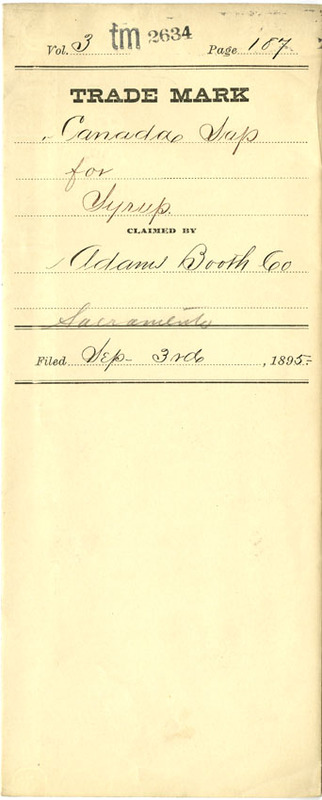 Vol. 3 tm 2634 Page 187
TRADE MARK
Canada Sap
for
Syrup.
CLAIMED BY
Adams Booth Co
Sacramento
Filed Sep- 3rd, 1895-